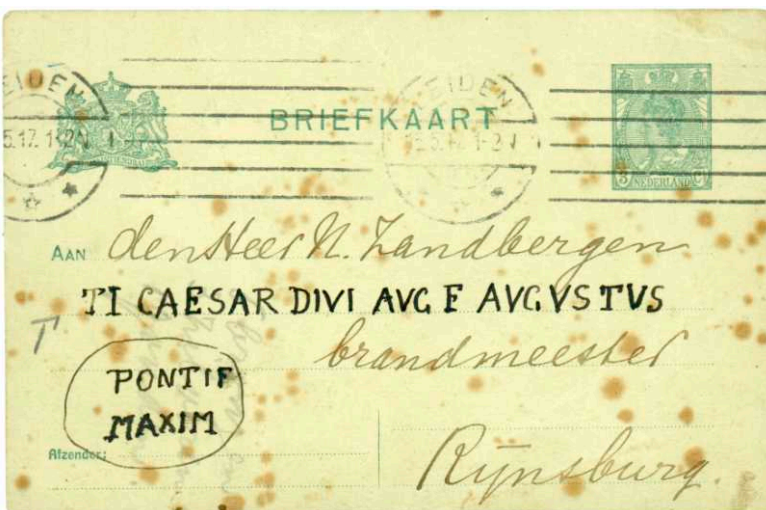 LEIDEN LEIDEN
5.17. 1-2N
BRIEFKAART
3 NEDERLAND
AAN den Heer N. Zandbergen
TI CAESAR DIVI AVG F AVGVSTVS
T
brandmeester
PONTIF
MAXIM
Afzender:
Rijnsburg.